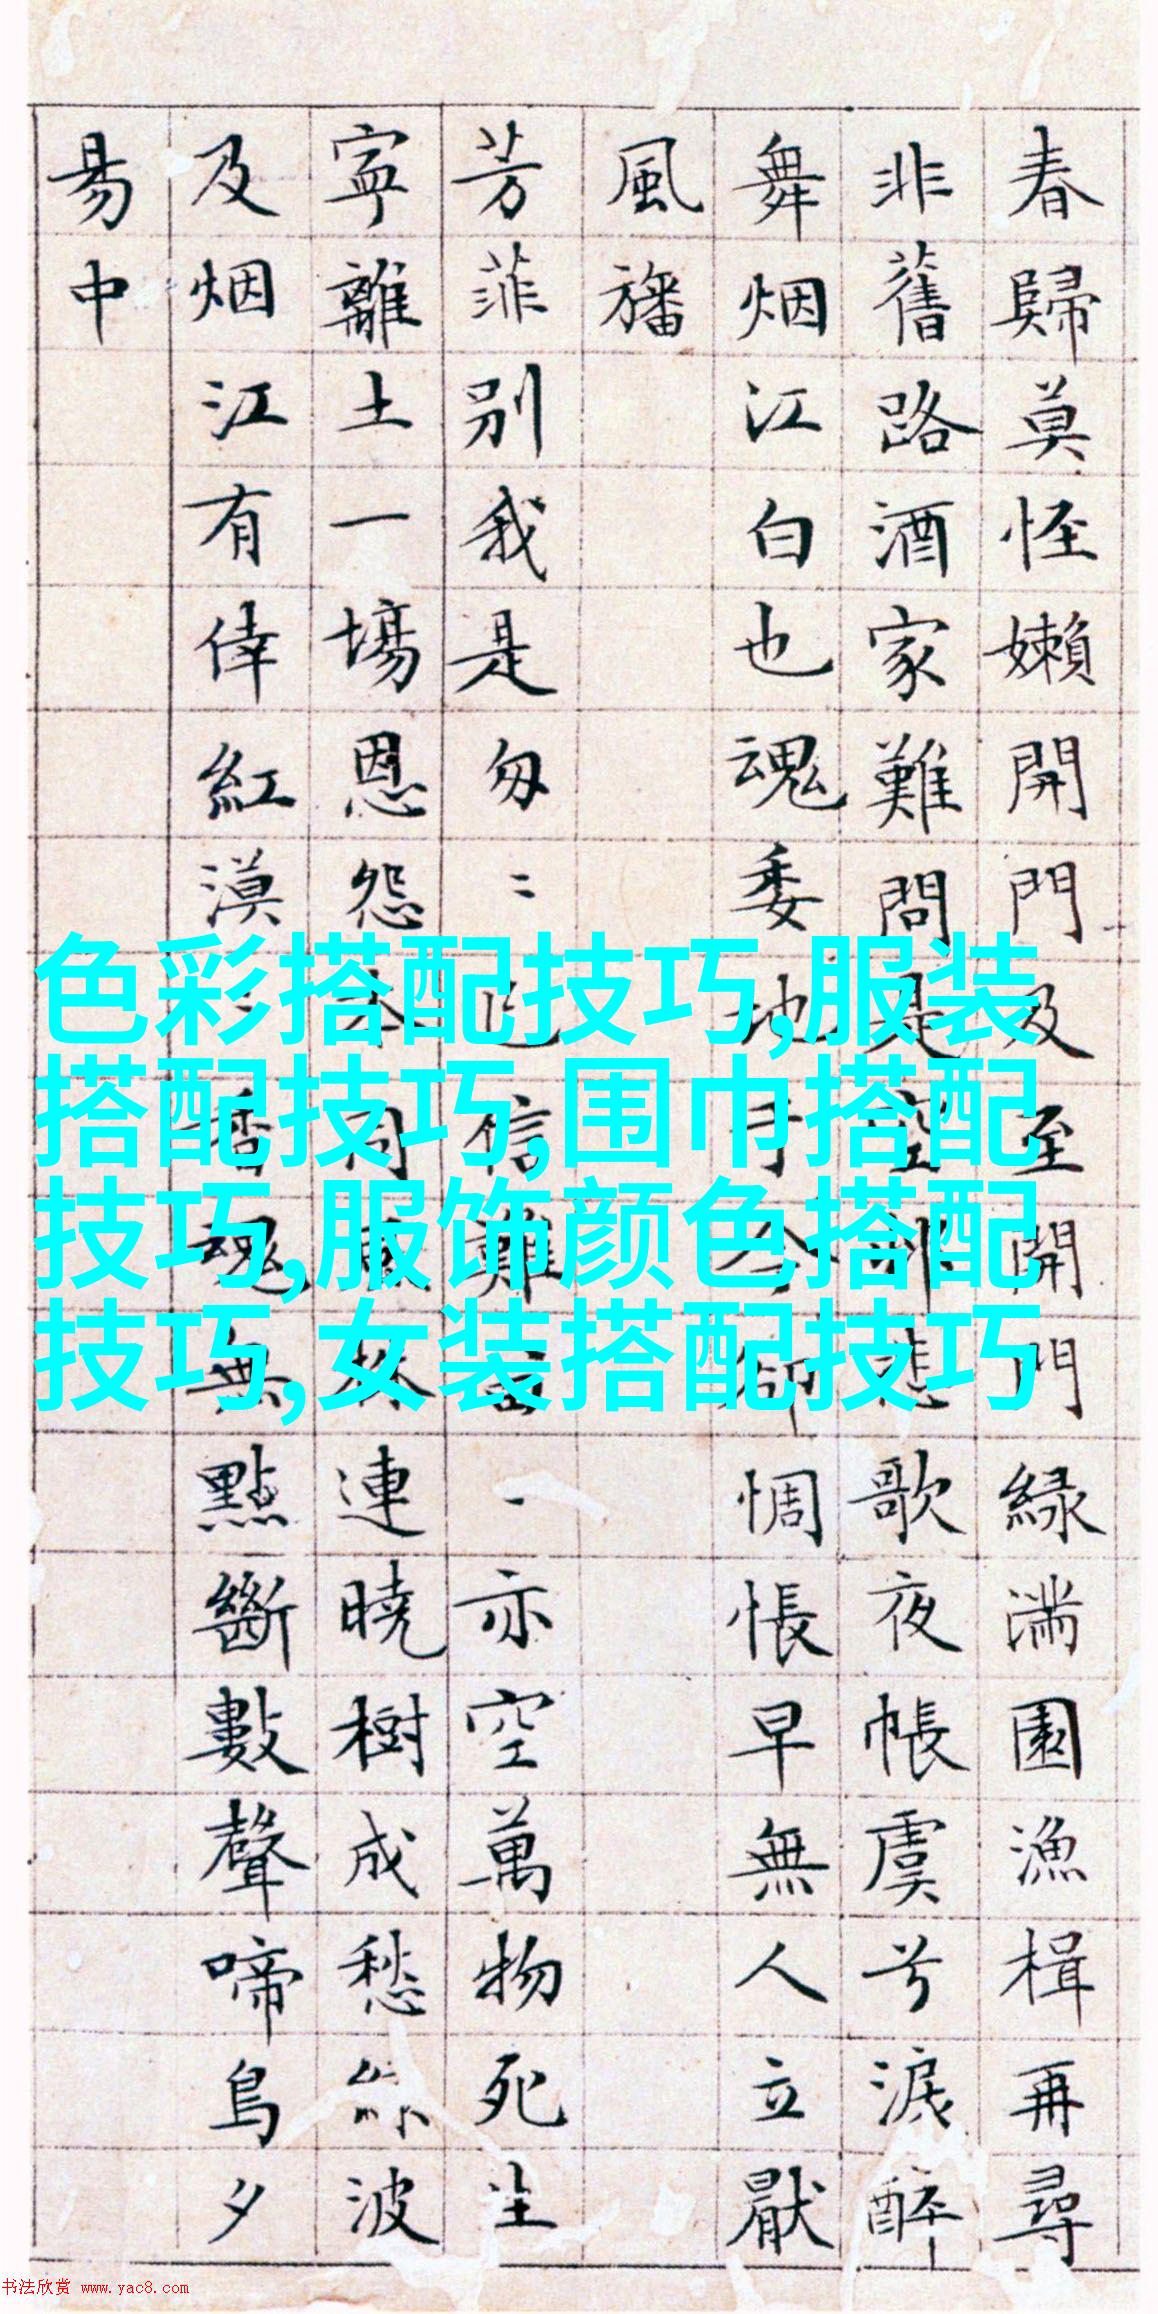 春歸莫怪嬾開門及至開門綠滿園漁楫再尋
非舊路酒家難問是空邨悲歌夜帳虞兮淚醉
舞烟江白也魂委地于今卻惆悵早無人立厭
風旛
芳菲別我是匆〻已信難言一亦空萬物死生
寧離土一場恩怨本同風株連曉樹成愁綠波
及烟江有倖紅漠〻香魂無點斷數聲啼鳥夕
易中
色彩搭配技巧,服装
搭配技巧,围巾搭配
技巧,服饰颜色搭配
技巧,女装搭配技巧
书法欣赏 www.yac8.com